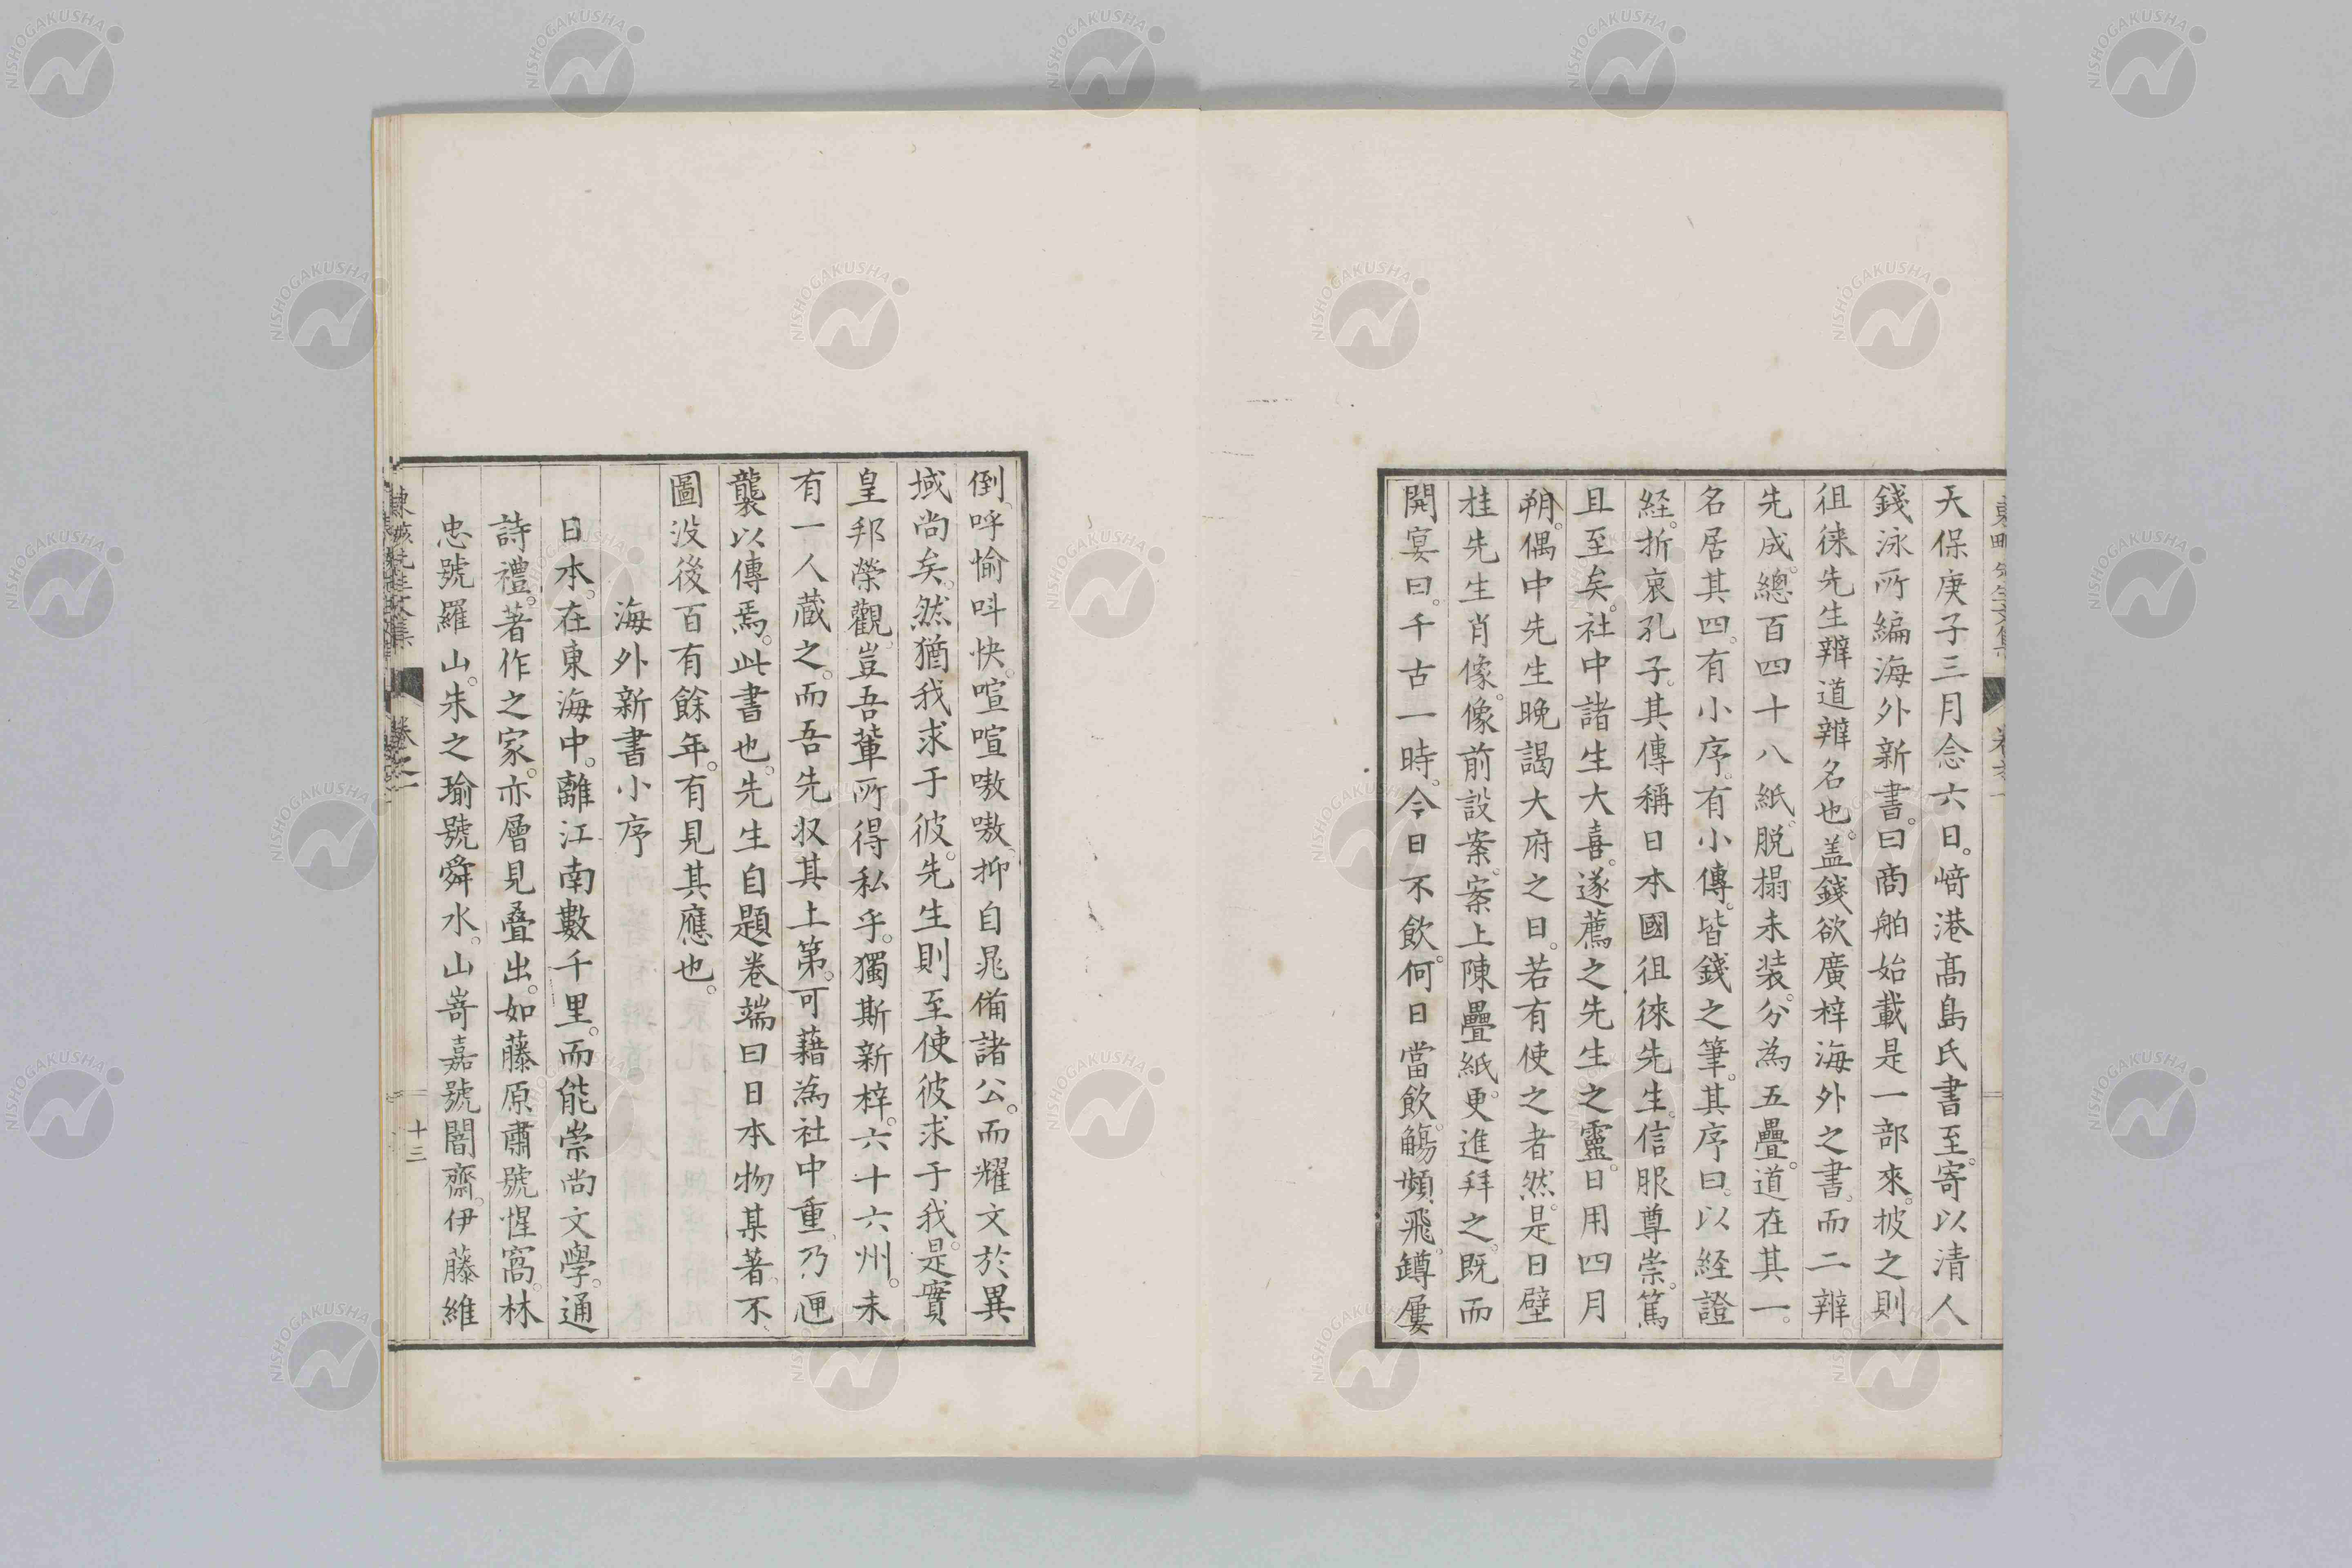 天保庚子三月念六日。﨑港髙島氏書至。寄以清人
錢泳所編海外新書。曰商舶始載是一部來。披之則
徂徠先生辨道辨名也。盖錢欲廣梓海外之書。而二辨
先成。總百四十八紙。脱搨未装。分為五疊。道在其一。
名居其四。有小序。有小傳。皆錢之筆。其序曰。以経證
経。折衷孔子。其傳稱日本國徂徠先生。信服尊崇。篤
且至矣。社中諸生大喜。遂薦之先生之靈。日用四月
朔。偶中先生晚謁大府之日。若有使之者然。是日壁
挂先生肖像。像前設案。案上陳疊紙。更進拜之。既而
開宴曰。千古一時。今日不飲。何日當飲。觴頻飛。罇屢
倒。呼愉呌快。喧喧嗷嗷。抑自晁備諸公。而耀文於異
域尚矣。然猶我求于彼。先生則至使彼求于我。是實
皇邦榮觀。豈吾輩所得私乎。獨斯新梓。六十六州。未
有一人蔵之。而吾先収其上第。可藉為社中重。乃匣
襲以傳焉。此書也。先生自題卷端曰日本物某著。不
圖沒後百有餘年。有見其應也。
海外新書小序
日本。在東海中。離江南數千里。而能崇尚文學。通
詩禮。著作之家。亦層見叠出。如藤原肅號惺窩。林
忠號羅山。朱之瑜號舜水。山嵜嘉號闇齋。伊藤維
卷之一
十三
NISHOGAKUSHA